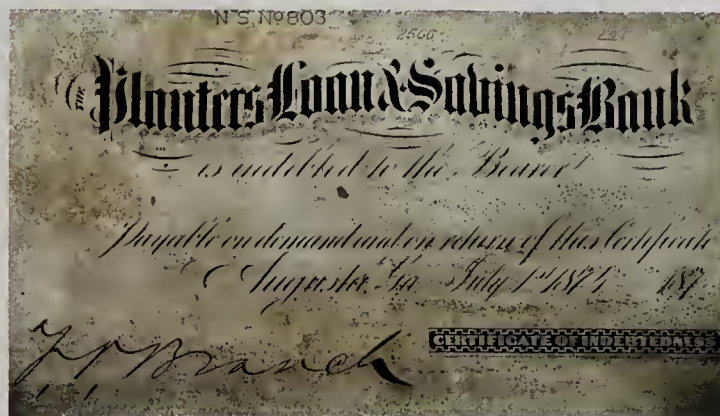 N S. Nº 803
2566
THE Planters Loan & Savings Bank
is indebted to the Bearer
Payable on demand and on return of this Certificate
Augusta, Ga. July 1st 187
CERTIFICATE OF INDEBTEDNESS
Branch